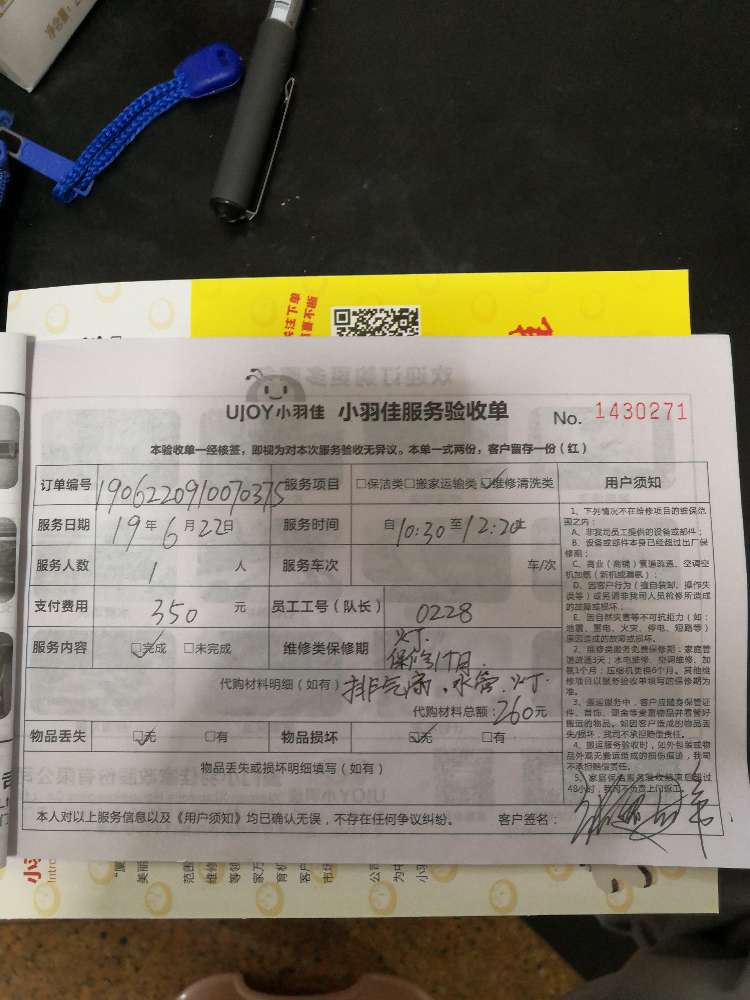 净含量
关注下单
惊喜不断
欢迎订购更多服务
UJOY小羽佳 小羽佳服务验收单 No. 1430271
本验收单一经核签，即视为对本次服务验收无异议。本单一式两份，客户留存一份（红）
订单编号 1906220910070375 服务项目 □保洁类□搬家运输类☑维修清洗类 用户须知
服务日期 19年6月22日 服务时间 自10:30至12:20止
服务人数 1 人 服务车次 车/次
支付费用 350 元 员工工号（队长） 0228
服务内容 ☑完成 □未完成 维修类保修期 灯
保修1个月
代购材料明细（如有） 排气扇、水管、灯
代购材料总额：260元
物品丢失 ☑无 □有 物品损坏 ☑无 □有
物品丢失或损坏明细填写（如有）
本人对以上服务信息以及《用户须知》均已确认无误，不存在任何争议纠纷。 客户签名：
1、下列情况不在维修项目的维保范
围之内：
A、非我司员工提供的设备或部件；
B、设备或部件本身已经超过出厂保
修期；
C、商业（商铺）管道疏通、空调空
机加氟（新机或漏氟）；
D、因客户行为（擅自装卸、操作失
误等）或另请非我司人员检修所造成
的故障或损坏；
E、因自然灾害等不可抗拒力（如：
地震、雷电、火灾、停电、短路等）
原因造成的故障或损坏。
2、维修类服务免费保修期：家庭管
道疏通3天；水电维修、空调维修、加
氟1个月；压缩机更换6个月。其他维
修项目以服务验收单填写的保修期为
准。
3、搬运服务中，客户应随身保管证
件、首饰、现金等贵重物品并看管好
搬运的物品。如因客户造成的物品丢
失/损坏，我司不承担赔偿责任。
4、搬运服务验收时，如外包装或物
品外观无搬运造成的损伤痕迹，我司
不承担赔偿责任。
5、家庭保洁服务验收结束后超过
48小时，我司不负责上门返工。